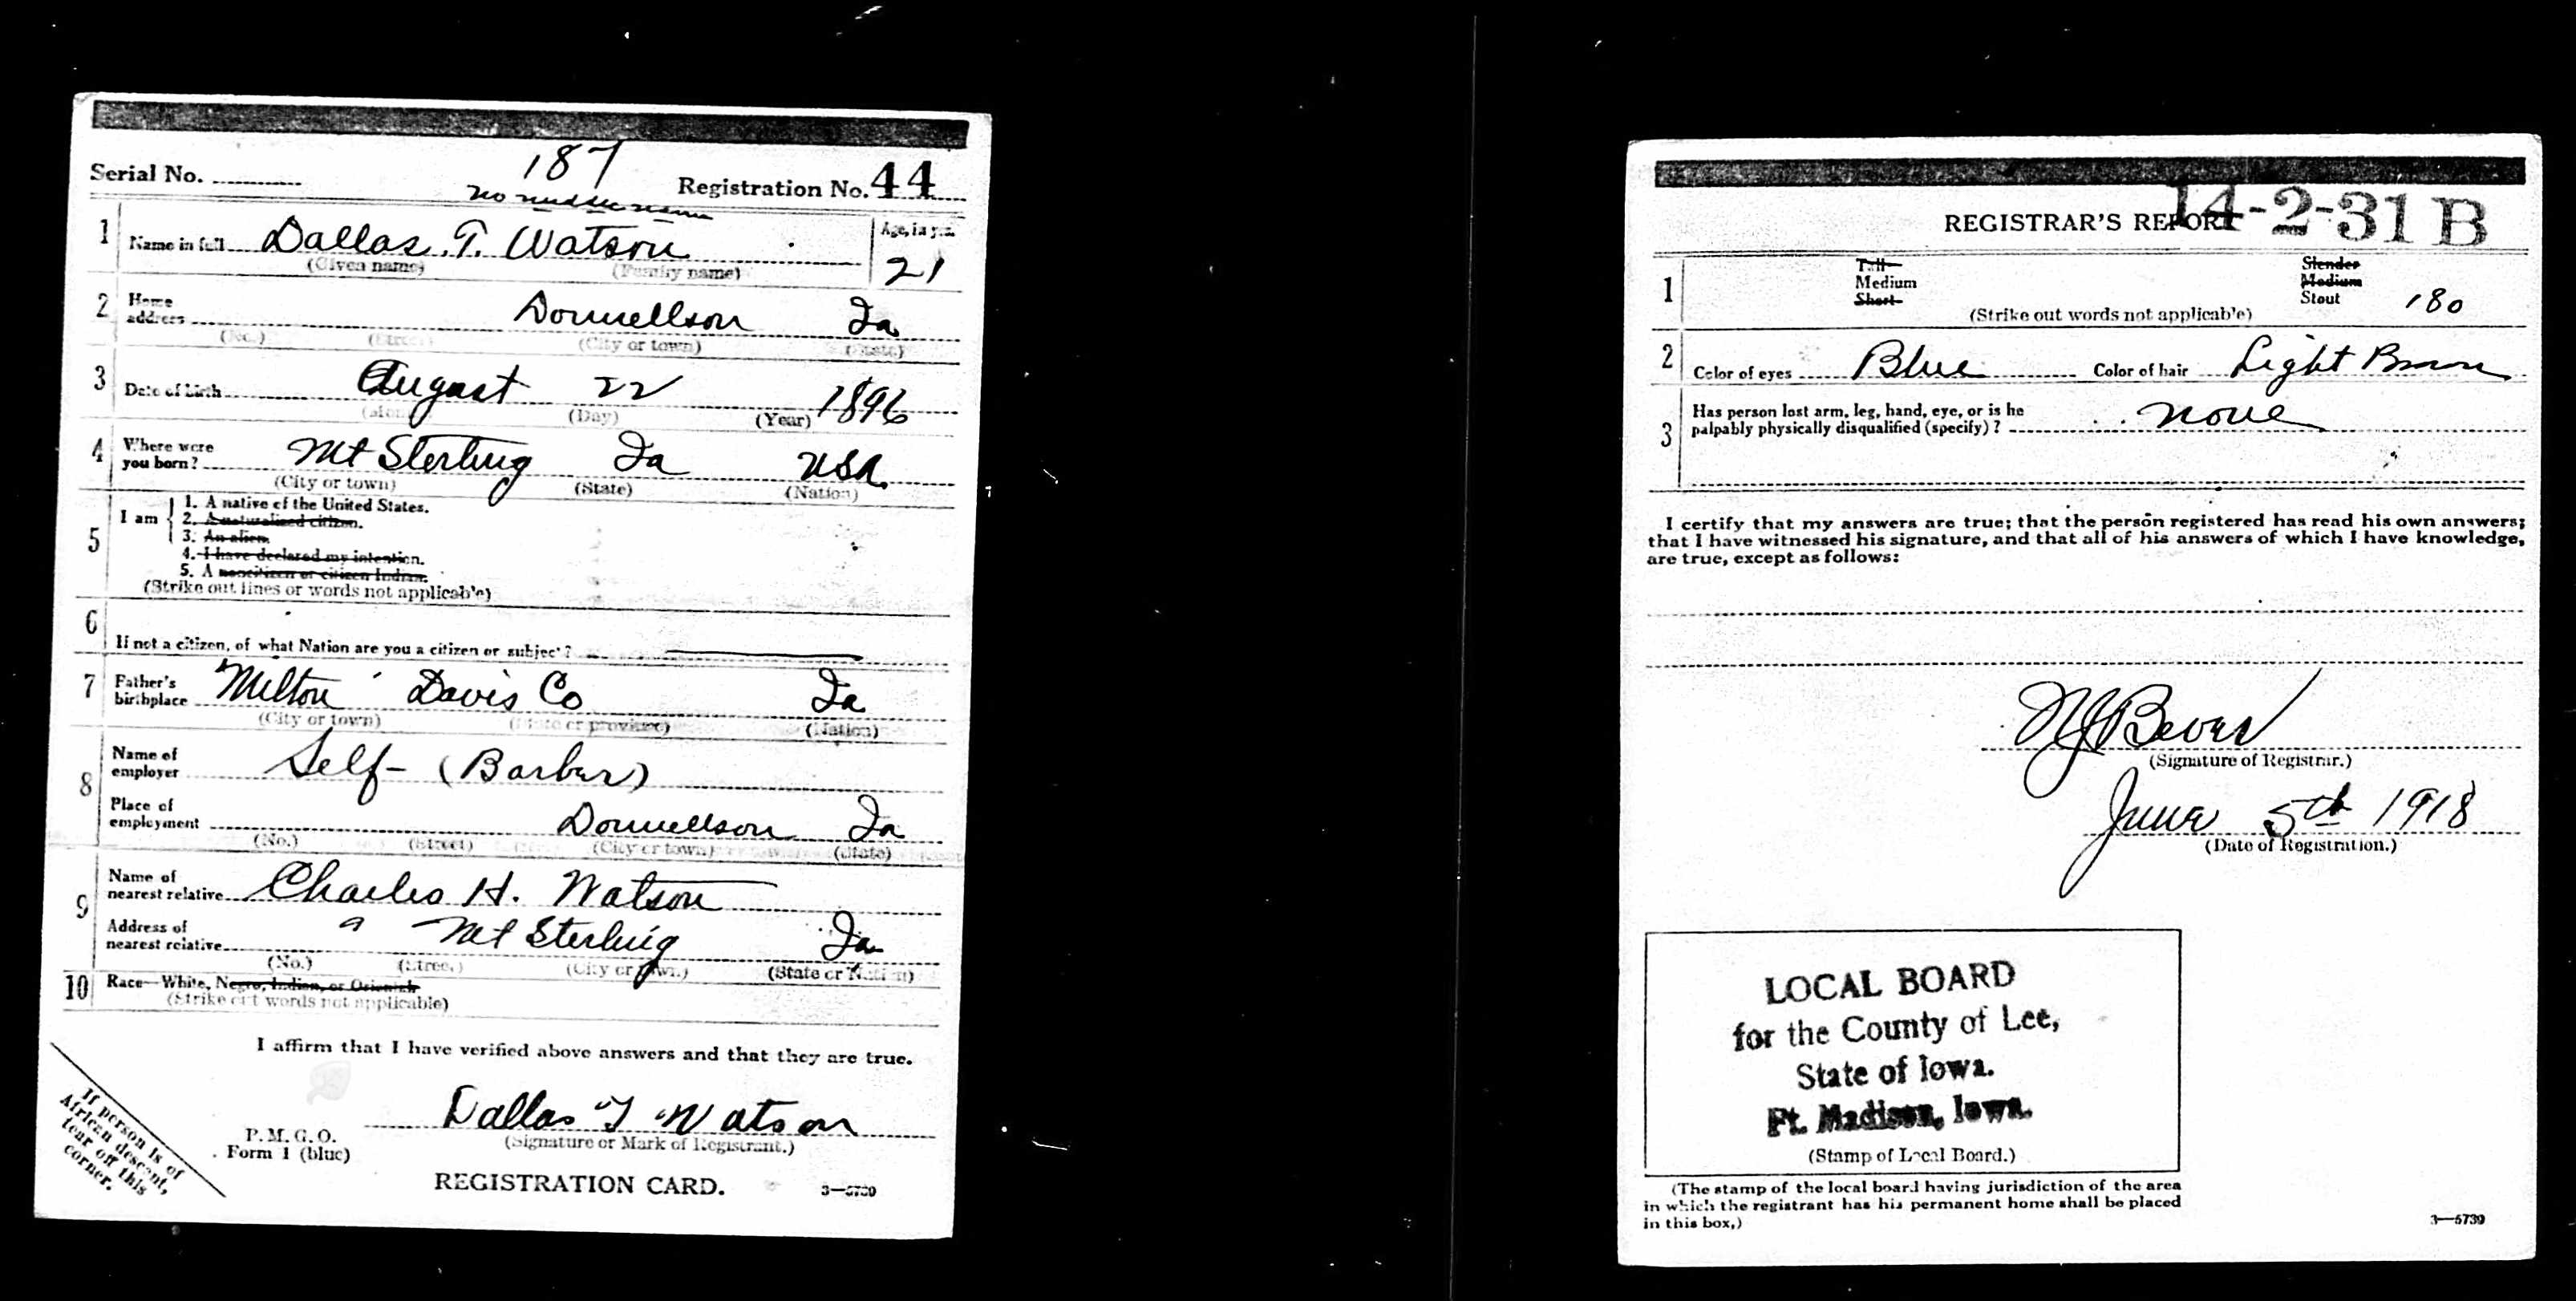 187
Serial No. Registration No. 44
no middle name
1 Name in full Dallas T. Watson Age, in yrs. 21
(Given name) (Family name)
2 Home address Donnellson Ia
(No.) (Street) (City or town) (State)
3 Date of birth August 22 1896
(Month) (Day) (Year)
4 Where were you born? Mt Sterling Ia USA
(City or town) (State) (Nation)
5 I am
1. A native of the United States.
2. A naturalized citizen.
3. An alien.
4. I have declared my intention.
5. A noncitizen or citizen Indian.
(Strike out lines or words not applicable)
6 If not a citizen, of what Nation are you a citizen or subject?
7 Father's birthplace Milton Davis Co Ia
(City or town) (State or province) (Nation)
8 Name of employer Self - (Barber)
Place of employment Donnellson Ia
(No.) (Street) (City or town) (State)
9 Name of nearest relative Charles H. Watson
Address of nearest relative Mt Sterling Ia
(No.) (Street) (City or town) (State or Nation)
10 Race—White, Negro, Indian, or Oriental
(Strike out words not applicable)
I affirm that I have verified above answers and that they are true.
Dallas T Watson
(Signature or Mark of Registrant.)
P. M. G. O.
Form 1 (blue)
REGISTRATION CARD.
3—5739
If person is of
African descent,
tear off this
corner.
14-2-31 B
REGISTRAR'S REPORT
1 Tall Slender
Medium Medium
Short Stout 180
(Strike out words not applicable)
2 Color of eyes Blue Color of hair Light Brown
3 Has person lost arm, leg, hand, eye, or is he
palpably physically disqualified (specify)? none
I certify that my answers are true; that the person registered has read his own answers;
that I have witnessed his signature, and that all of his answers of which I have knowledge,
are true, except as follows:
(Signature of Registrar.)
June 5th 1918
(Date of Registration.)
LOCAL BOARD
for the County of Lee,
State of Iowa.
Ft. Madison, Iowa.
(Stamp of Local Board.)
(The stamp of the local board having jurisdiction of the area
in which the registrant has his permanent home shall be placed
in this box.)
3—5739